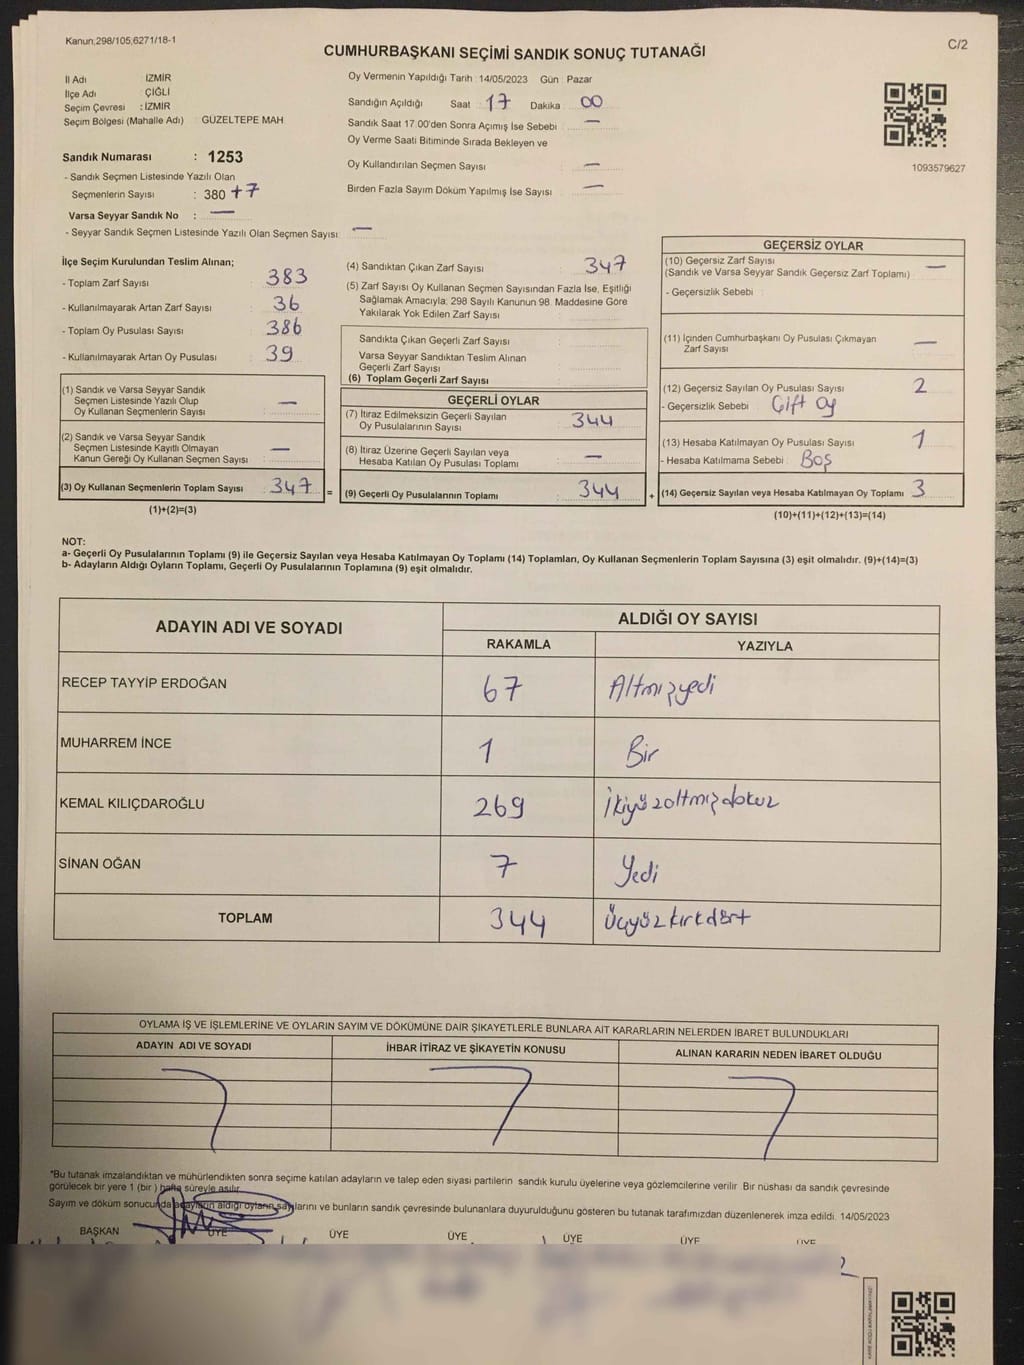 Kanun,298/105,6271/18-1
C/2
CUMHURBAŞKANI SEÇİMİ SANDIK SONUÇ TUTANAĞI
İl Adı İZMİR
İlçe Adı ÇİĞLİ
Seçim Çevresi : İZMİR
Seçim Bölgesi (Mahalle Adı) GÜZELTEPE MAH
Sandık Numarası : 1253
- Sandık Seçmen Listesinde Yazılı Olan
Seçmenlerin Sayısı : 380 +7
Varsa Seyyar Sandık No : —
- Seyyar Sandık Seçmen Listesinde Yazılı Olan Seçmen Sayısı —
Oy Vermenin Yapıldığı Tarih : 14/05/2023 Gün : Pazar
Sandığın Açıldığı Saat 17 Dakika 00
Sandık Saat 17.00'den Sonra Açımış İse Sebebi —
Oy Verme Saati Bitiminde Sırada Bekleyen ve
Oy Kullandırılan Seçmen Sayısı —
Birden Fazla Sayım Döküm Yapılmış İse Sayısı —
1093579627
İlçe Seçim Kurulundan Teslim Alınan;
- Toplam Zarf Sayısı 383
- Kullanılmayarak Artan Zarf Sayısı 36
- Toplam Oy Pusulası Sayısı 386
- Kullanılmayarak Artan Oy Pusulası 39
(1) Sandık ve Varsa Seyyar Sandık
Seçmen Listesinde Yazılı Olup
Oy Kullanan Seçmenlerin Sayısı —
(2) Sandık ve Varsa Seyyar Sandık
Seçmen Listesinde Kayıtlı Olmayan
Kanun Gereği Oy Kullanan Seçmen Sayısı —
(3) Oy Kullanan Seçmenlerin Toplam Sayısı 347 =
(1)+(2)=(3)
(4) Sandıktan Çıkan Zarf Sayısı 347
(5) Zarf Sayısı Oy Kullanan Seçmen Sayısından Fazla İse, Eşitliği
Sağlamak Amacıyla; 298 Sayılı Kanunun 98. Maddesine Göre
Yakılarak Yok Edilen Zarf Sayısı
Sandıkta Çıkan Geçerli Zarf Sayısı
Varsa Seyyar Sandıktan Teslim Alınan
Geçerli Zarf Sayısı
(6) Toplam Geçerli Zarf Sayısı
GEÇERLİ OYLAR
(7) İtiraz Edilmeksizin Geçerli Sayılan
Oy Pusulalarının Sayısı 344
(8) İtiraz Üzerine Geçerli Sayılan veya
Hesaba Katılan Oy Pusulası Toplamı —
(9) Geçerli Oy Pusulalarının Toplamı 344 +
GEÇERSİZ OYLAR
(10) Geçersiz Zarf Sayısı
(Sandık ve Varsa Seyyar Sandık Geçersiz Zarf Toplamı) —
- Geçersizlik Sebebi :
(11) İçinden Cumhurbaşkanı Oy Pusulası Çıkmayan
Zarf Sayısı —
(12) Geçersiz Sayılan Oy Pusulası Sayısı 2
- Geçersizlik Sebebi Çift Oy
(13) Hesaba Katılmayan Oy Pusulası Sayısı 1
- Hesaba Katılmama Sebebi Boş
(14) Geçersiz Sayılan veya Hesaba Katılmayan Oy Toplamı 3
(10)+(11)+(12)+(13)=(14)
NOT:
a- Geçerli Oy Pusulalarının Toplamı (9) ile Geçersiz Sayılan veya Hesaba Katılmayan Oy Toplamı (14) Toplamları, Oy Kullanan Seçmenlerin Toplam Sayısına (3) eşit olmalıdır. (9)+(14)=(3)
b- Adayların Aldığı Oyların Toplamı, Geçerli Oy Pusulalarının Toplamına (9) eşit olmalıdır.
ADAYIN ADI VE SOYADI
ALDIĞI OY SAYISI
RAKAMLA YAZIYLA
RECEP TAYYİP ERDOĞAN 67 Altmışyedi
MUHARREM İNCE 1 Bir
KEMAL KILIÇDAROĞLU 269 İkiyüzaltmışdokuz
SİNAN OĞAN 7 Yedi
TOPLAM 344 Üçyüzkırkdört
OYLAMA İŞ VE İŞLEMLERİNE VE OYLARIN SAYIM VE DÖKÜMÜNE DAİR ŞİKAYETLERLE BUNLARA AİT KARARLARIN NELERDEN İBARET BULUNDUKLARI
ADAYIN ADI VE SOYADI İHBAR İTİRAZ VE ŞİKAYETİN KONUSU ALINAN KARARIN NEDEN İBARET OLDUĞU
*Bu tutanak imzalandıktan ve mühürlendikten sonra seçime katılan adayların ve talep eden siyası partilerin sandık kurulu üyelerine veya gözlemcilerine verilir Bir nüshası da sandık çevresinde
görülecek bir yere 1 (bir ) hafta süreyle asılır
Sayım ve döküm sonucunda adayların aldığı oyların sayılarını ve bunların sandık çevresinde bulunanlara duyurulduğunu gösteren bu tutanak tarafımızdan düzenlenerek imza edildi. 14/05/2023
BAŞKAN ÜYE ÜYE ÜYE ÜYE ÜYE ÜYE